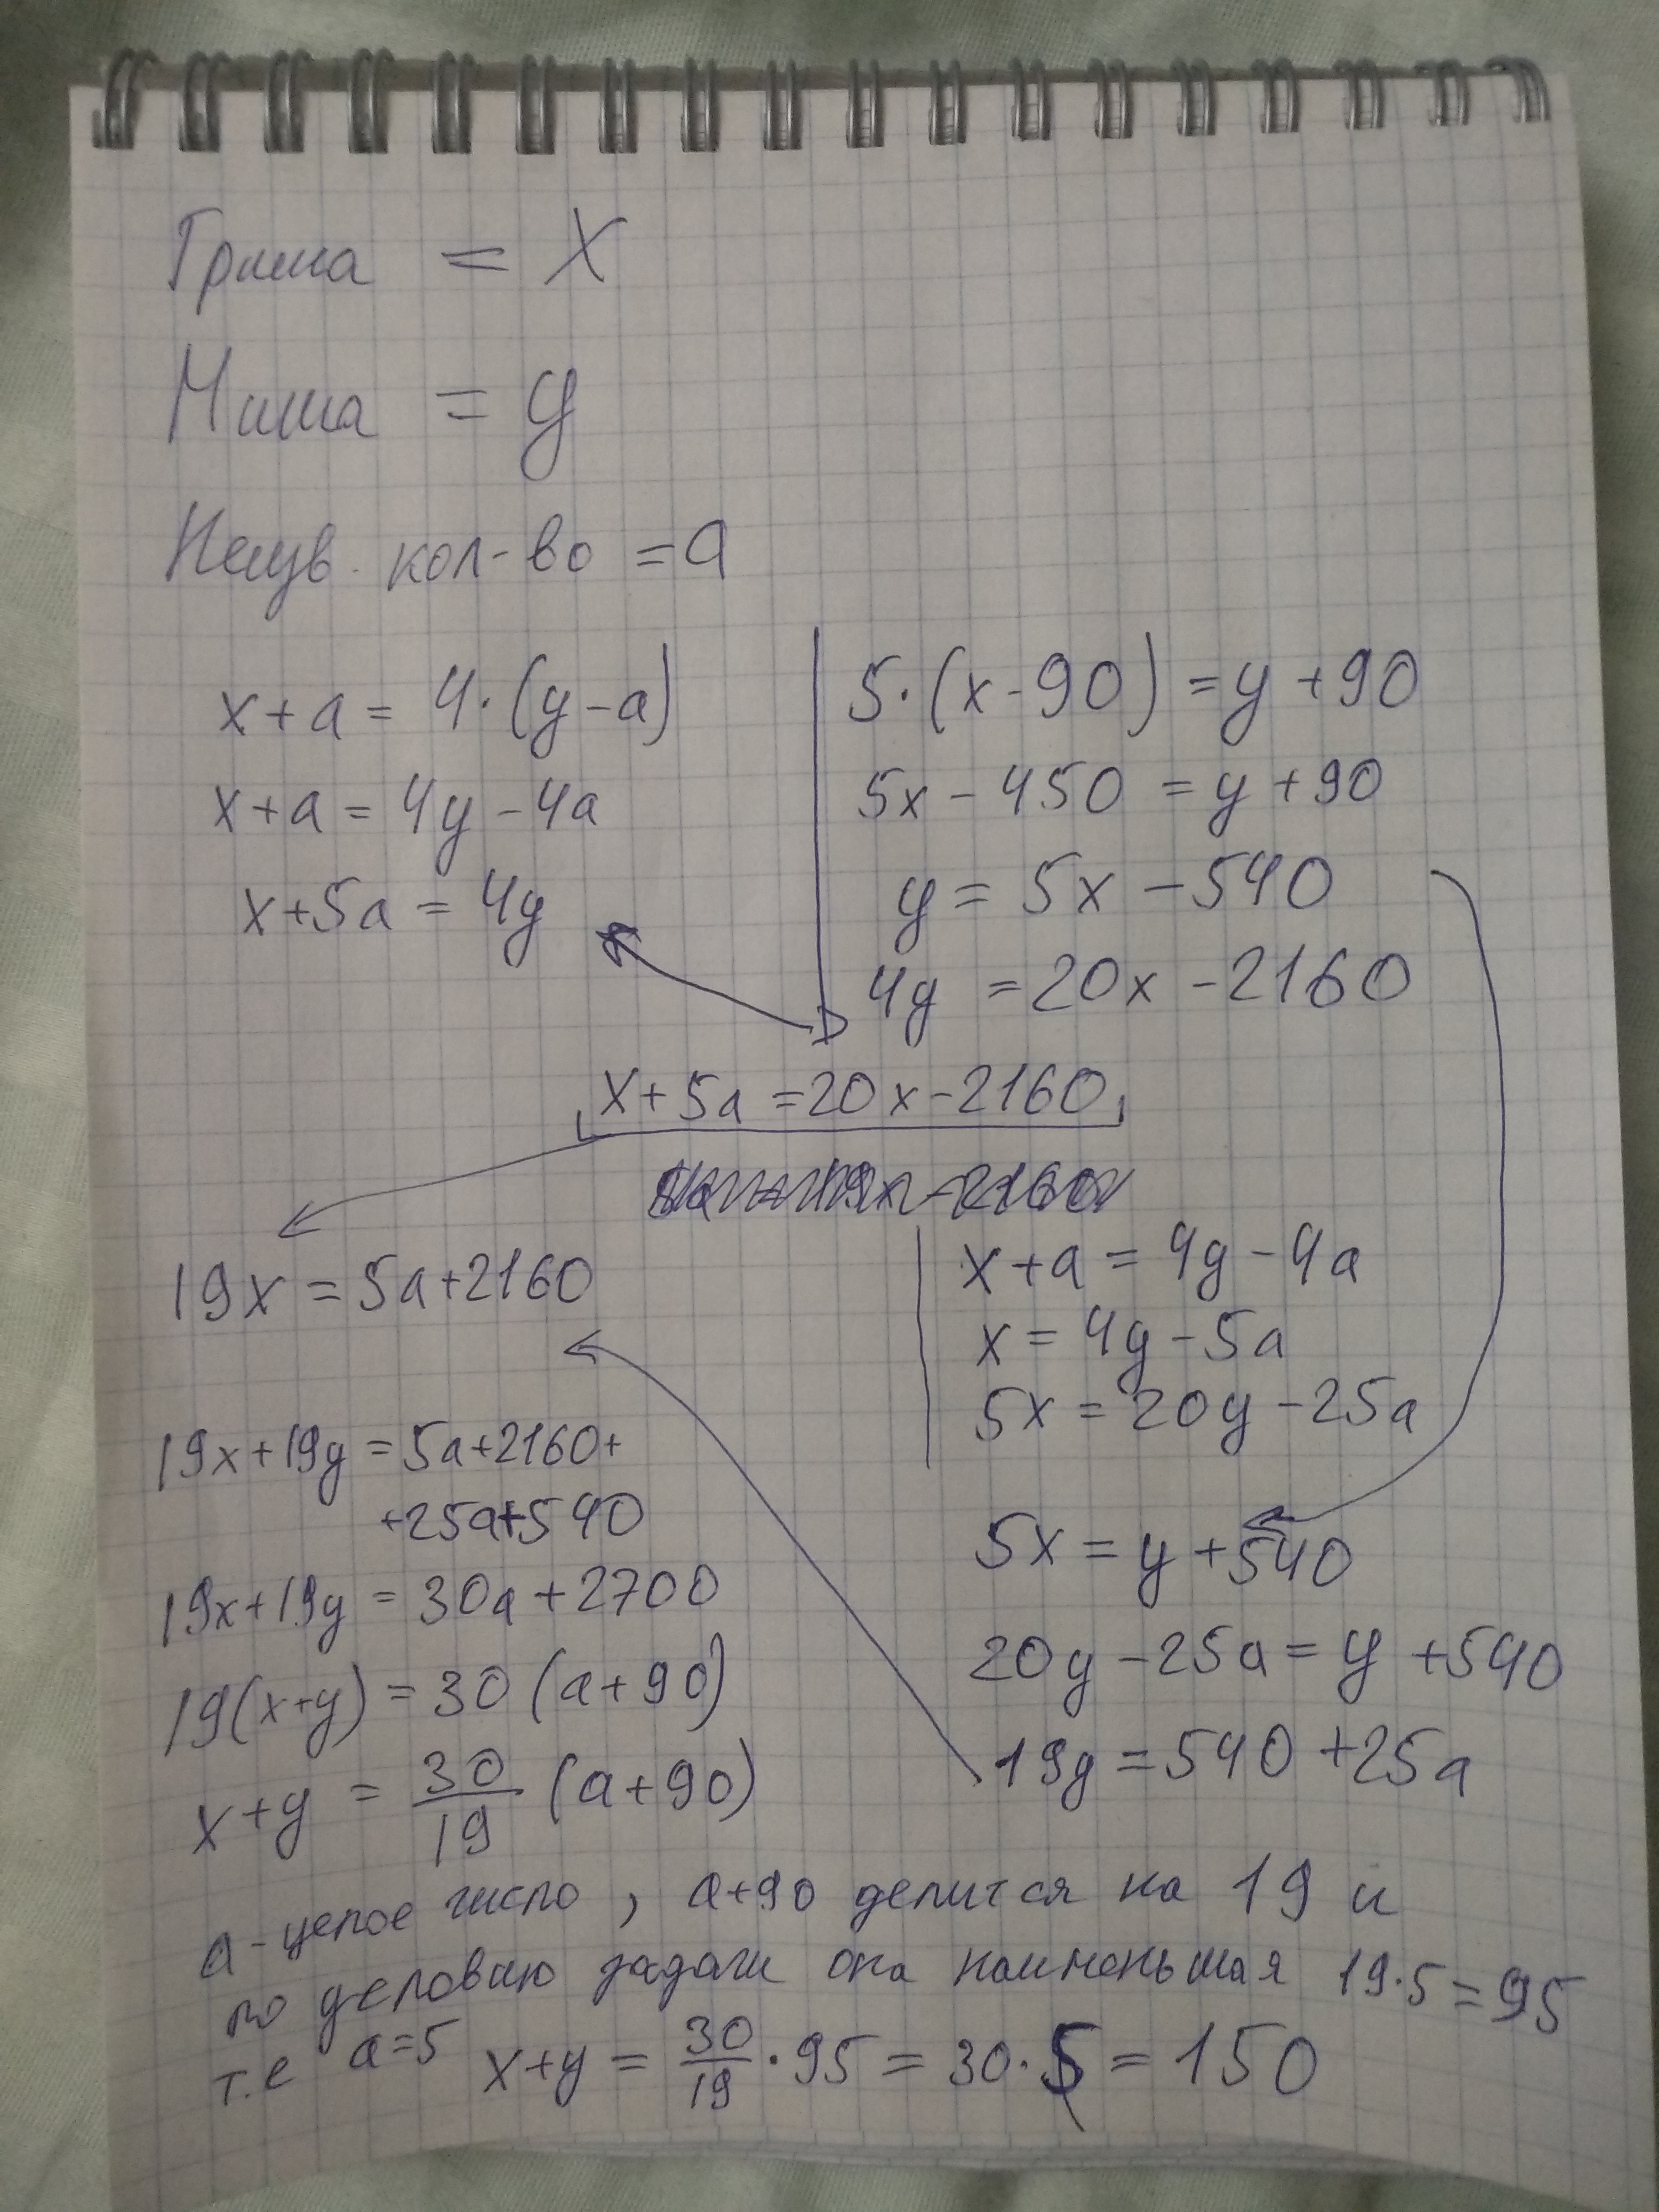 Гриша = X
Миша = y
Неизв. кол-во = a
x + a = 4·(y - a)
x + a = 4y - 4a
x + 5a = 4y
5·(x - 90) = y + 90
5x - 450 = y + 90
y = 5x - 540
4y = 20x - 2160
x + 5a = 20x - 2160
19x = 5a + 2160
x + a = 4y - 4a
x = 4y - 5a
5x = 20y - 25a
5x = y + 540
20y - 25a = y + 540
19y = 540 + 25a
19x + 19y = 5a + 2160 +
+ 25a + 540
19x + 19y = 30a + 2700
19(x + y) = 30 (a + 90)
x + y = 30/19 (a + 90)
a - целое число, a + 90 делится на 19 и
по условию задачи она наименьшая 19·5 = 95
т.е a = 5 x + y = 30/19 · 95 = 30·5 = 150